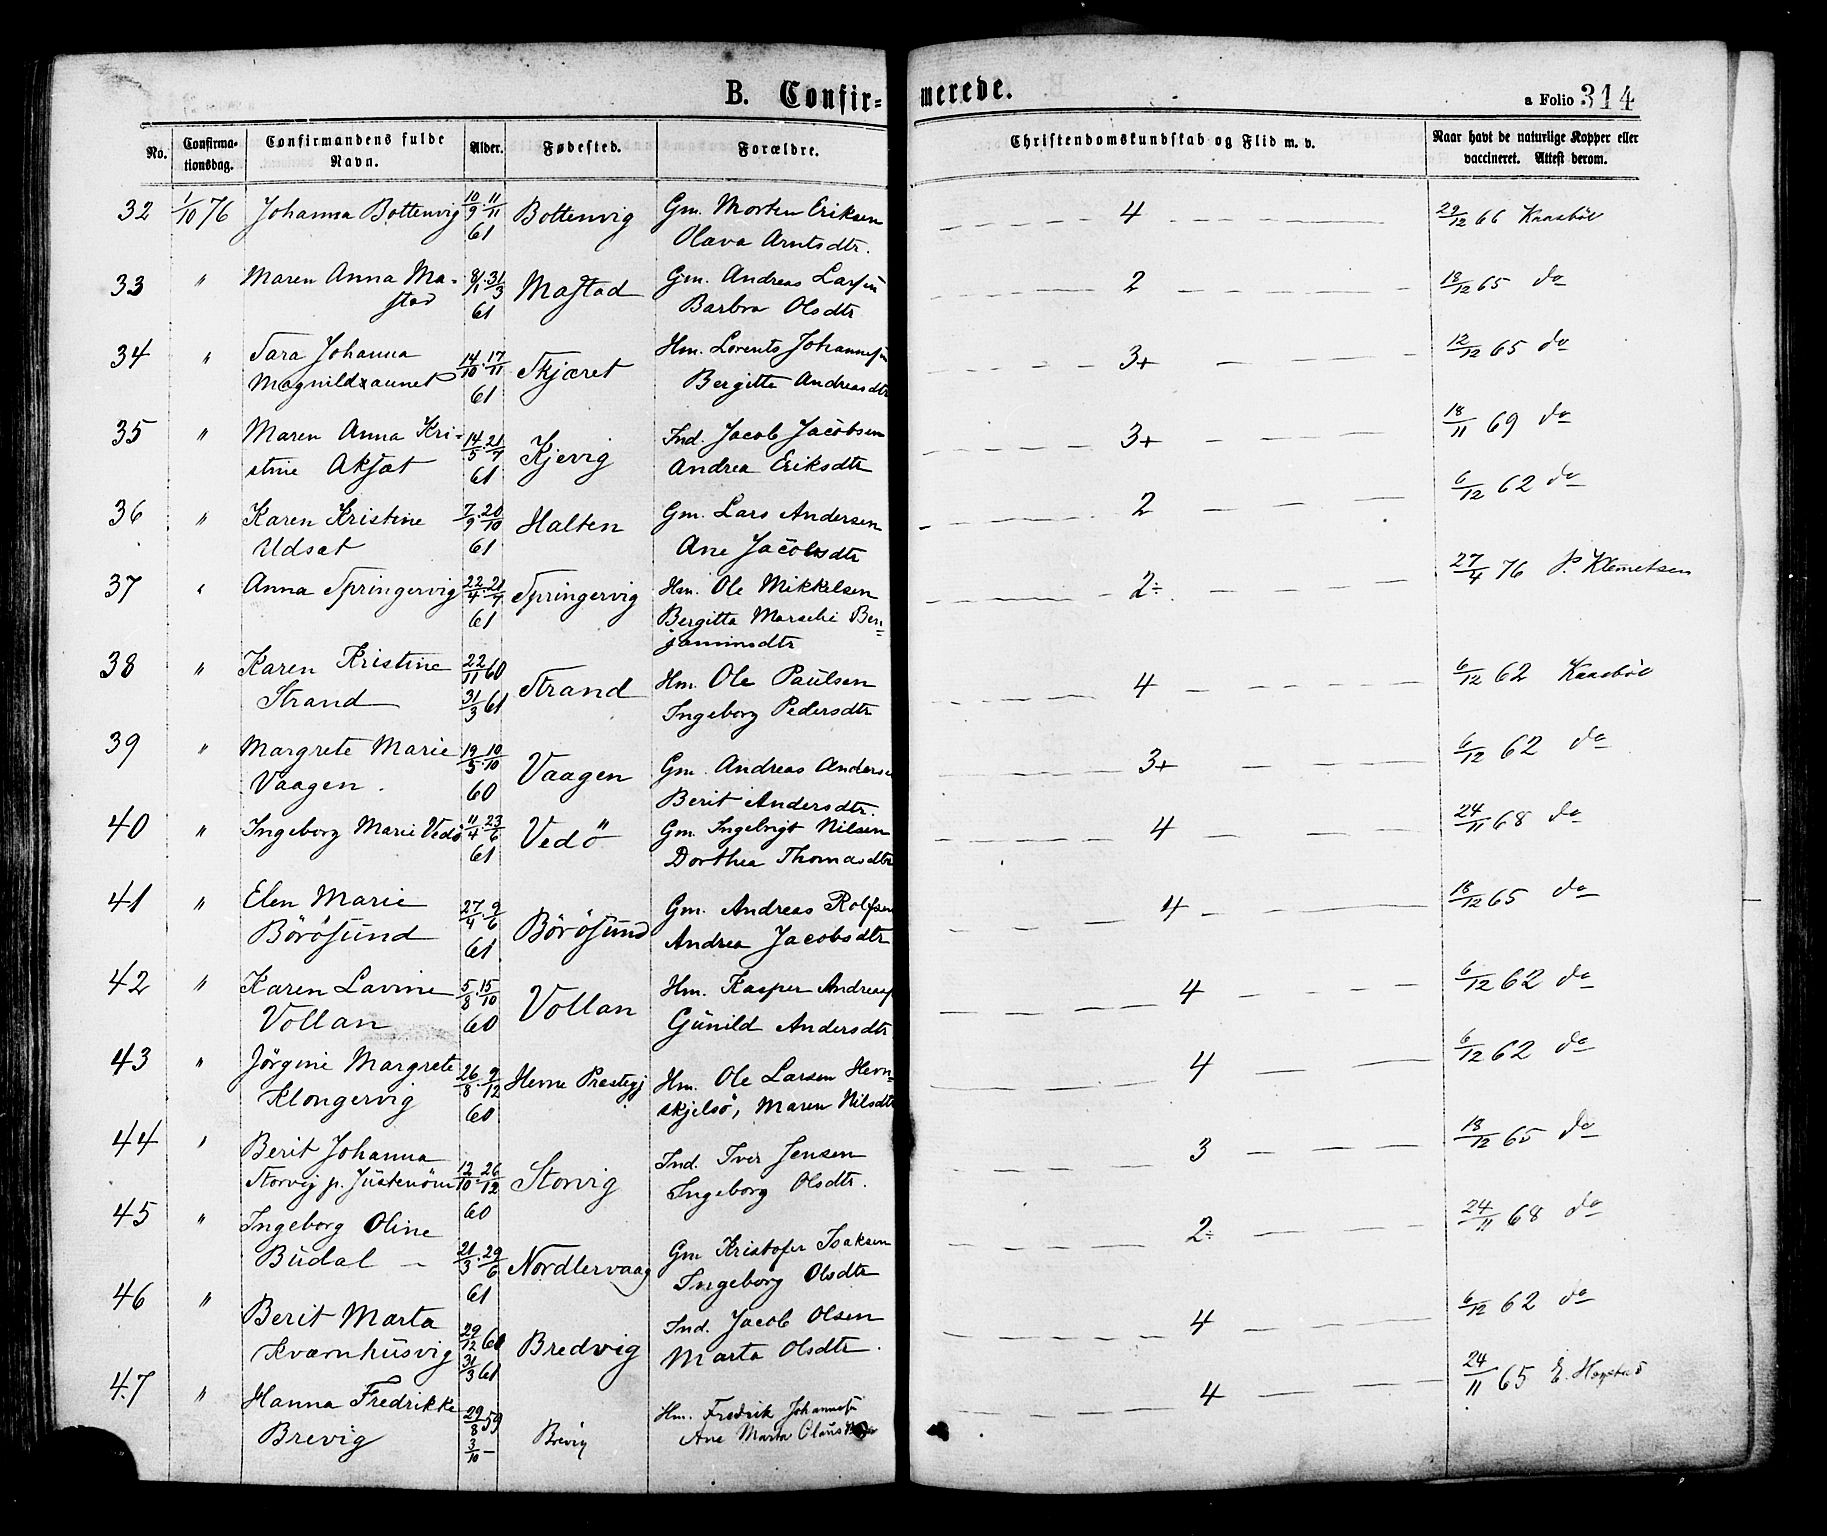 B. Confir=
merede.
a Folio 314
No.
Confirma-
tionsdag.
Confirmandens fulde
Navn.
Alder.
Fødested.
Forældre.
Christendomskundskab og Flid m. v.
Naar havt de naturlige Kopper eller
vaccineret. Attest derom.
32 1/10 76 Johanna Bottenvig 10/9 11/11 61 Bottenvig Gm. Morten Eriksen
Olava Arntsdtr. 4 29/12 66 Kaasböl
33 " Maren Anna Ma-
stad 8/1 31/3 61 Mastad Gm. Andreas Larsen
Barbra Olsdtr 2 18/12 65 do
34 " Sara Johanna
Magnildsaunet 14/10 17/11 61 Skjæret Hm. Lorents Johannesen
Bergitte Andreasdtr 3+ 12/12 65 do
35 " Maren Anna Kri-
stine Aksæt 14/5 21/7 61 Kjevig Ind. Jacob Jacobsen
Andrea Eriksdtr 3+ 18/11 69 do
36 " Karen Kristine
Udsæt 7/9 20/10 61 Halten Gm. Lars Andersen
Ane Jacobsdtr 2 6/12 62 do
37 " Anna Springervig 22/4 21/7 61 Springervig Hm. Ole Mikkelsen
Bergitta Marselie Ben=
jaminsdtr 2÷ 27/4 76 P. Klemetsen
38 " Karen Kristine
Strand 22/11 60 31/3 61 Strand Hm. Ole Paulsen
Ingeborg Pedersdtr 4 6/12 62 Kaasböl
39 " Margrete Marie
Vaagen. 19/5 10/10 60 Vaagen Gm. Andreas Anders
Berit Andersdtr. 3+ 6/12 62 do
40 " Ingeborg Marie Vedö 11/4 23/6 61 Vedö Gm. Ingebrigt Nilsen
Dorthea Thomasdtr 4 24/11 68 do
41 " Elen Marie
Börösund 27/4 9/6 61 Börösund Gm. Andreas Rolfsen
Andrea Jacobsdtr 4 18/12 65 do
42 " Karen Lavine
Vollan 5/8 15/10 60 Vollan Hm. Kasper Andreas
Gunild Andersdtr 4 6/12 62 do
43 " Jörgine Margrete
Klongervig 26/8 9/12 60 Hevne Prestegj Hm. Ole Larsen Hevn=
skjelsö, Maren Nilsdtr 4 6/12 62 do
44 " Berit Johanna
Storvig p. Justenöen 12/10 26/12 60 Storvig Ind. Iver Jensen
Ingeborg Olsdtr. 3 18/12 65 do
45 " Ingeborg Oline
Budal 21/3 29/6 61 Nordlervaag Gm Kristofer Isaksen
Ingeborg Olsdtr 2÷ 24/11 68 do
46 " Berit Marta
Kværnhusvig 29/12 60 31/3 61 Bredvig Ind. Jacob Olsen
Marta Olsdtr. 4 6/12 62 do
47 " Hanna Fredrikke
Brevig 29/8 59 3/10 - Brevig Hm. Fredrik Johannesen
Ane Marta 4 24/11 65 E. Hopstad